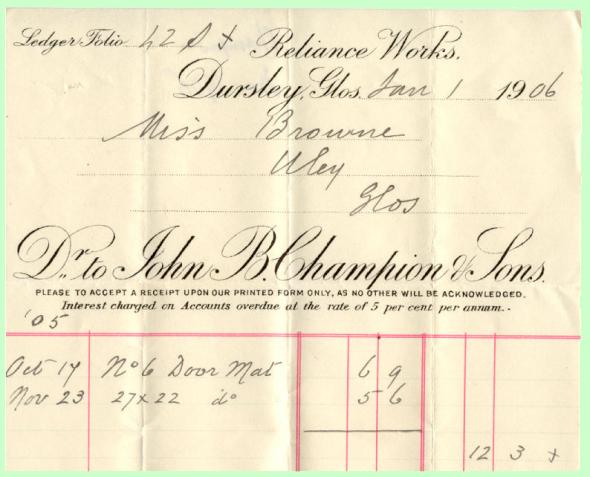 Ledger Folio 42
Reliance Works.
Dursley, Glos. Jan 1 1906
Miss Browne
Uley
Glos
Dr. to John B. Champion & Sons.
PLEASE TO ACCEPT A RECEIPT UPON OUR PRINTED FORM ONLY, AS NO OTHER WILL BE ACKNOWLEDGED.
Interest charged on Accounts overdue at the rate of 5 per cent per annum.-
'05
Oct 17 No 6 Door Mat 6 9
Nov 23 27 x 22 do 5 6
12 3 x